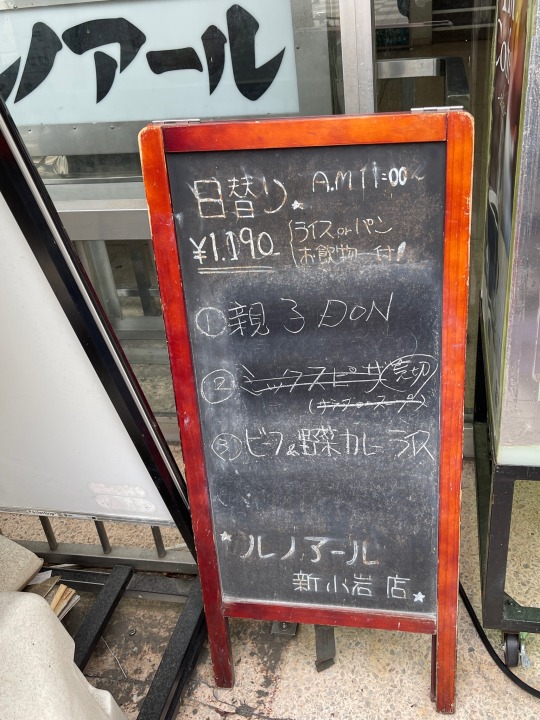 ルノアール
日替り A.M 11:00〜
¥1.190- ライス or パン
お飲物一付
① 親子DON
② ミックスピザ 売切
③ ビーフ&野菜カレーライス
ルノアール
新小岩店